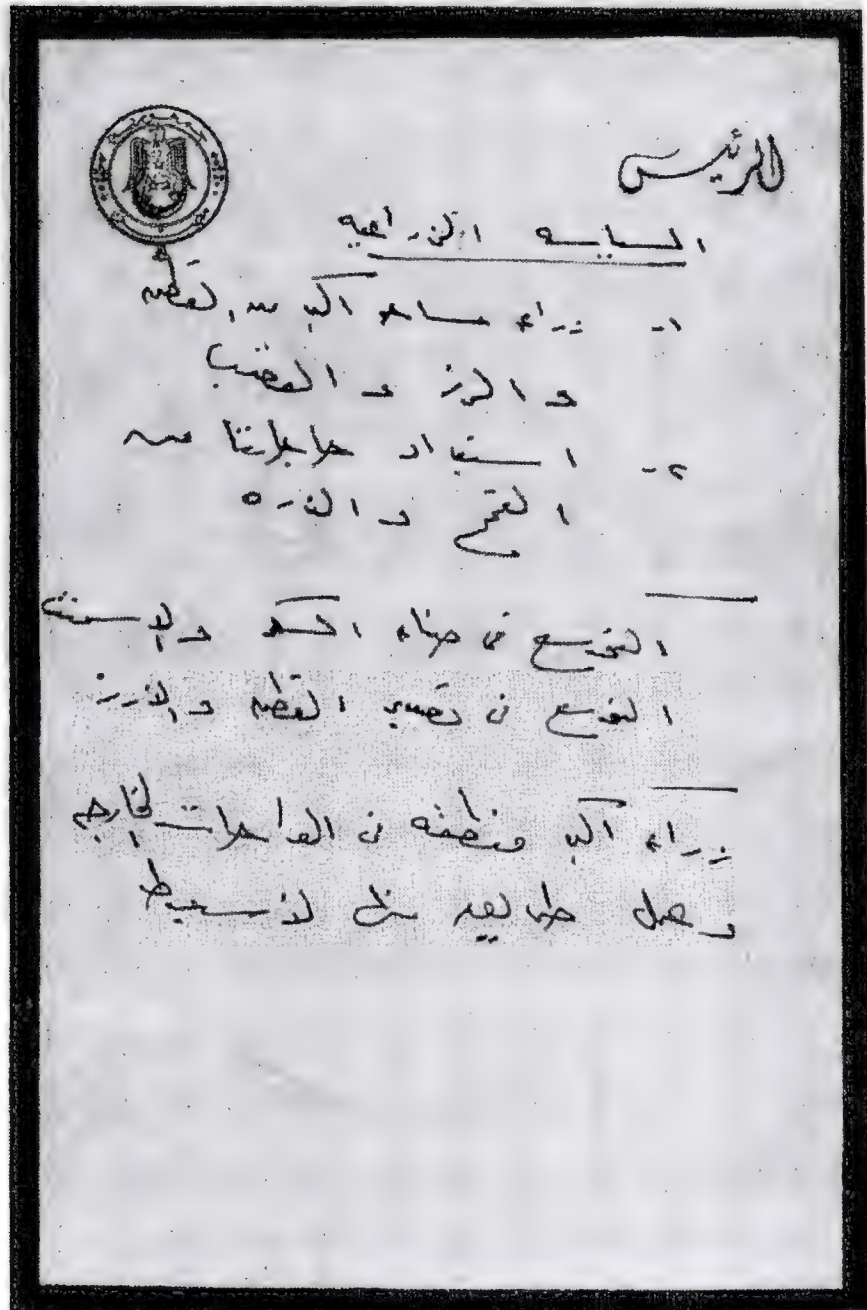 الرئيس
السياسه الزراعيه
١- زراعه مساحه اكبر من القطن
و الرز و القصب
٢- استيراد حاجاتنا من
القمح و الذره
التوسع فى صناعه السكر والاسمنت
التوسع فى تصدير القطن والارز
زراعه اكبر منطقه فى الواحات الخارجه
وعمل طريق لاسيوط